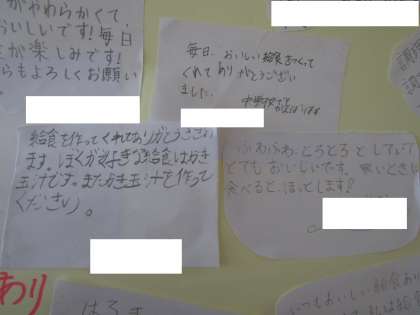 がやわらかくて、
おいしいです!毎日
が楽しみです!
らもよろしくお願い
毎日、おいしい給食をつくって
くれてありがとうござい
ました。
中学校でも
がんばります
給食を作ってくれてありがとうござい
ます。ぼくがすきな給食はかき
玉汁です。またかき玉汁を作って
ください。
ふわふわ、とろとろとしていて
とてもおいしいです。寒いときに
食べると、ほっとします!
あり
はるさ
いつもおいしい給食あり